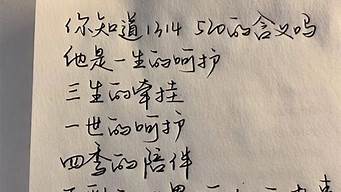 你知道1314 520的含义吗
他是一生的呵护
三生的牵挂
一世的呵护
四季的陪伴